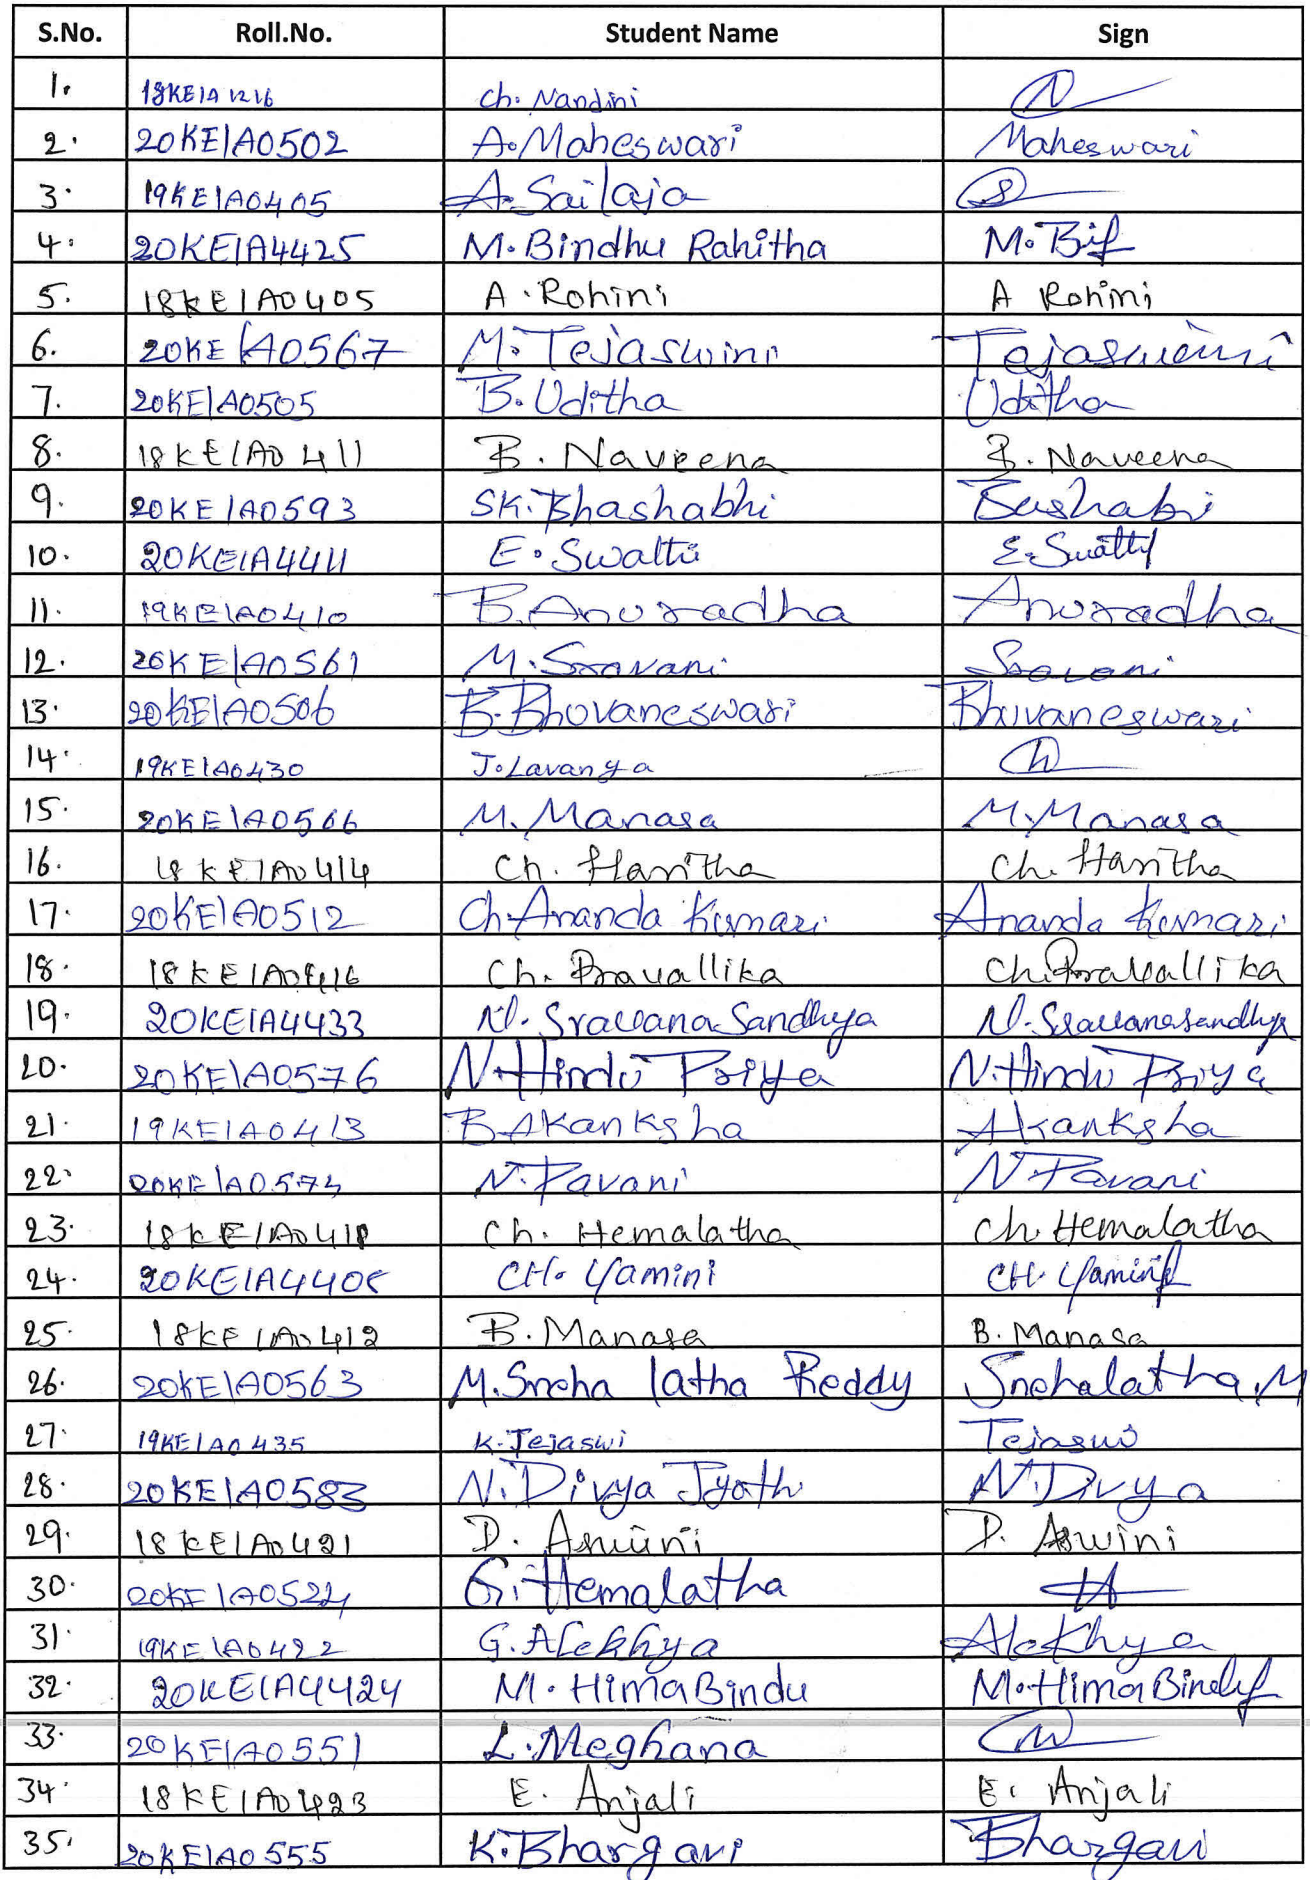 S.No. Roll.No. Student Name Sign
1. 18KE1A1216 Ch. Nandini
2. 20KE1A0502 A. Maheswari Maheswari
3. 19KE1A0405 A. Sailaja
4. 20KE1A4425 M. Bindhu Rahitha M.
5. 18KE1A0405 A. Rohini A Rohini
6. 20KE1A0567 M. Tejaswini Tejaswini
7. 20KE1A0505 B. Uditha Uditha
8. 18KE1A0411 B. Naveena B. Naveena
9. 20KE1A0593 SK. Bhashabhi Bashabi
10. 20KE1A4411 E. Swathi E. Swathi
11. 19KE1A0410 B. Anuradha Anuradha
12. 20KE1A0561 M. Sravani Sravani
13. 20KE1A0506 B. Bhuvaneswari Bhuvaneswari
14. 19KE1A0430 J. Lavanya
15. 20KE1A0566 M. Manasa M. Manasa
16. 18KE1A0414 Ch. Haritha Ch. Haritha
17. 20KE1A0512 Ch. Ananda Kumari Ananda Kumari
18. 18KE1A0416 Ch. Pravallika Ch. Pravallika
19. 20KE1A4433 N. Sravana Sandhya N. Sravana Sandhya
20. 20KE1A0576 N. Hindu Priya N. Hindu Priya
21. 19KE1A0413 B. Akanksha Akanksha
22. 20KE1A0574 N. Pavani N Pavani
23. 18KE1A0418 Ch. Hemalatha Ch. Hemalatha
24. 20KE1A4408 CH. Yamini CH. Yamini
25. 18KE1A0412 B. Manasa B. Manasa
26. 20KE1A0563 M. Sneha latha Reddy Snehalatha.M
27. 19KE1A0435 K. Tejaswi Tejaswi
28. 20KE1A0583 N. Divya Jyothi N. Divya
29. 18KE1A0421 D. Aswini D. Aswini
30. 20KE1A0524 G. Hemalatha H
31. 19KE1A0422 G. Alekhya Alekhya
32. 20KE1A4424 M. Hima Bindu M. Hima Bindu
33. 20KE1A0551 L. Meghana
34. 18KE1A0423 E. Anjali E. Anjali
35. 20KE1A0555 K. Bhargavi Bhargavi